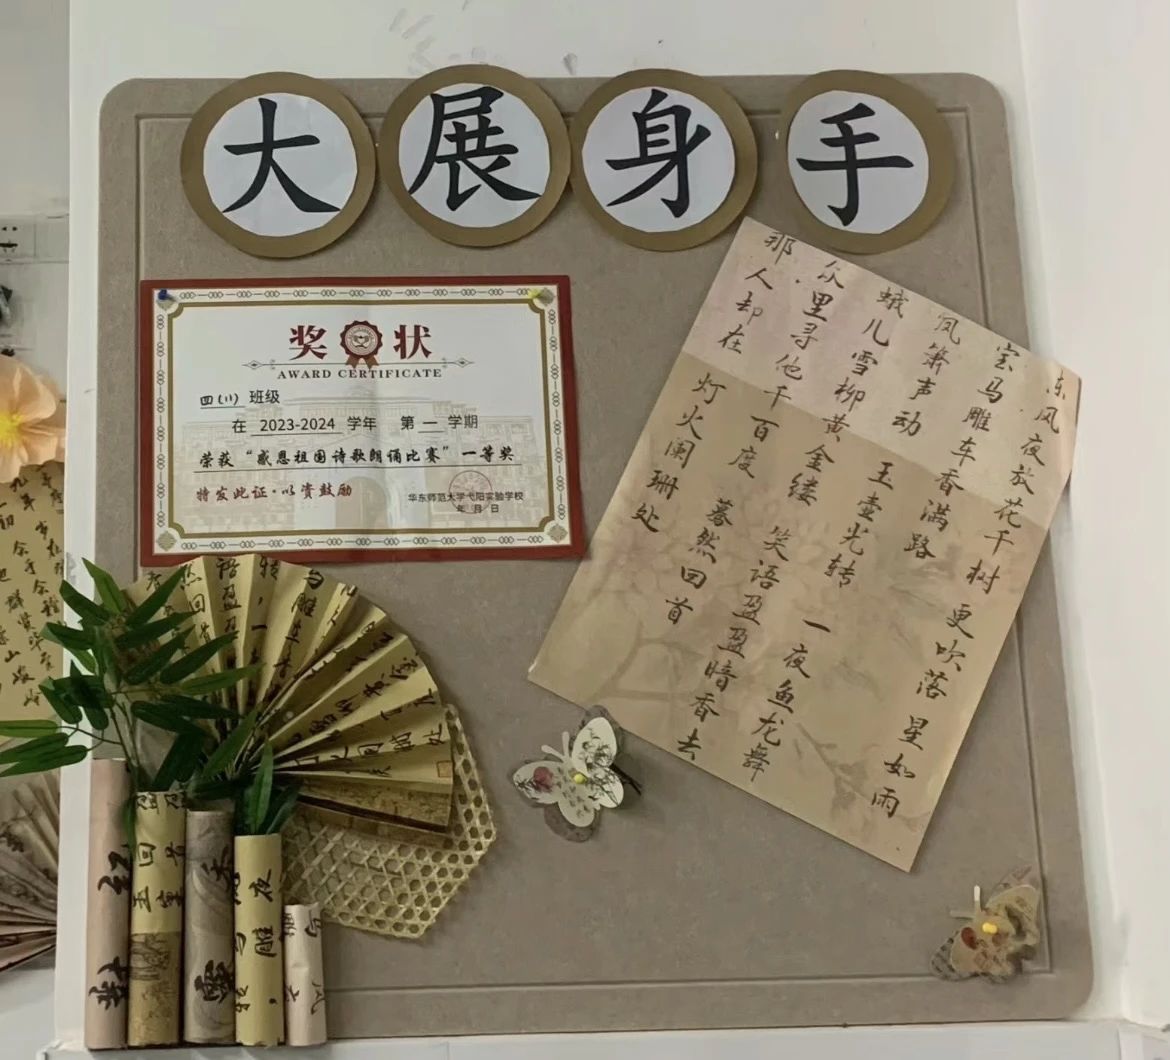 大展身手
奖状
AWARD CERTIFICATE
四(八) 班级
在 2023-2024 学年 第 一 学期
荣获“感恩祖国诗歌朗诵比赛”一等奖
特发此证·以资鼓励
华东师范大学弋阳实验学校
年 月 日
东风夜放花千树 更吹落 星如雨
宝马雕车香满路
凤箫声动 玉壶光转 一夜鱼龙舞
蛾儿雪柳黄金缕 笑语盈盈暗香去
众里寻他千百度 蓦然回首
那人却在 灯火阑珊处